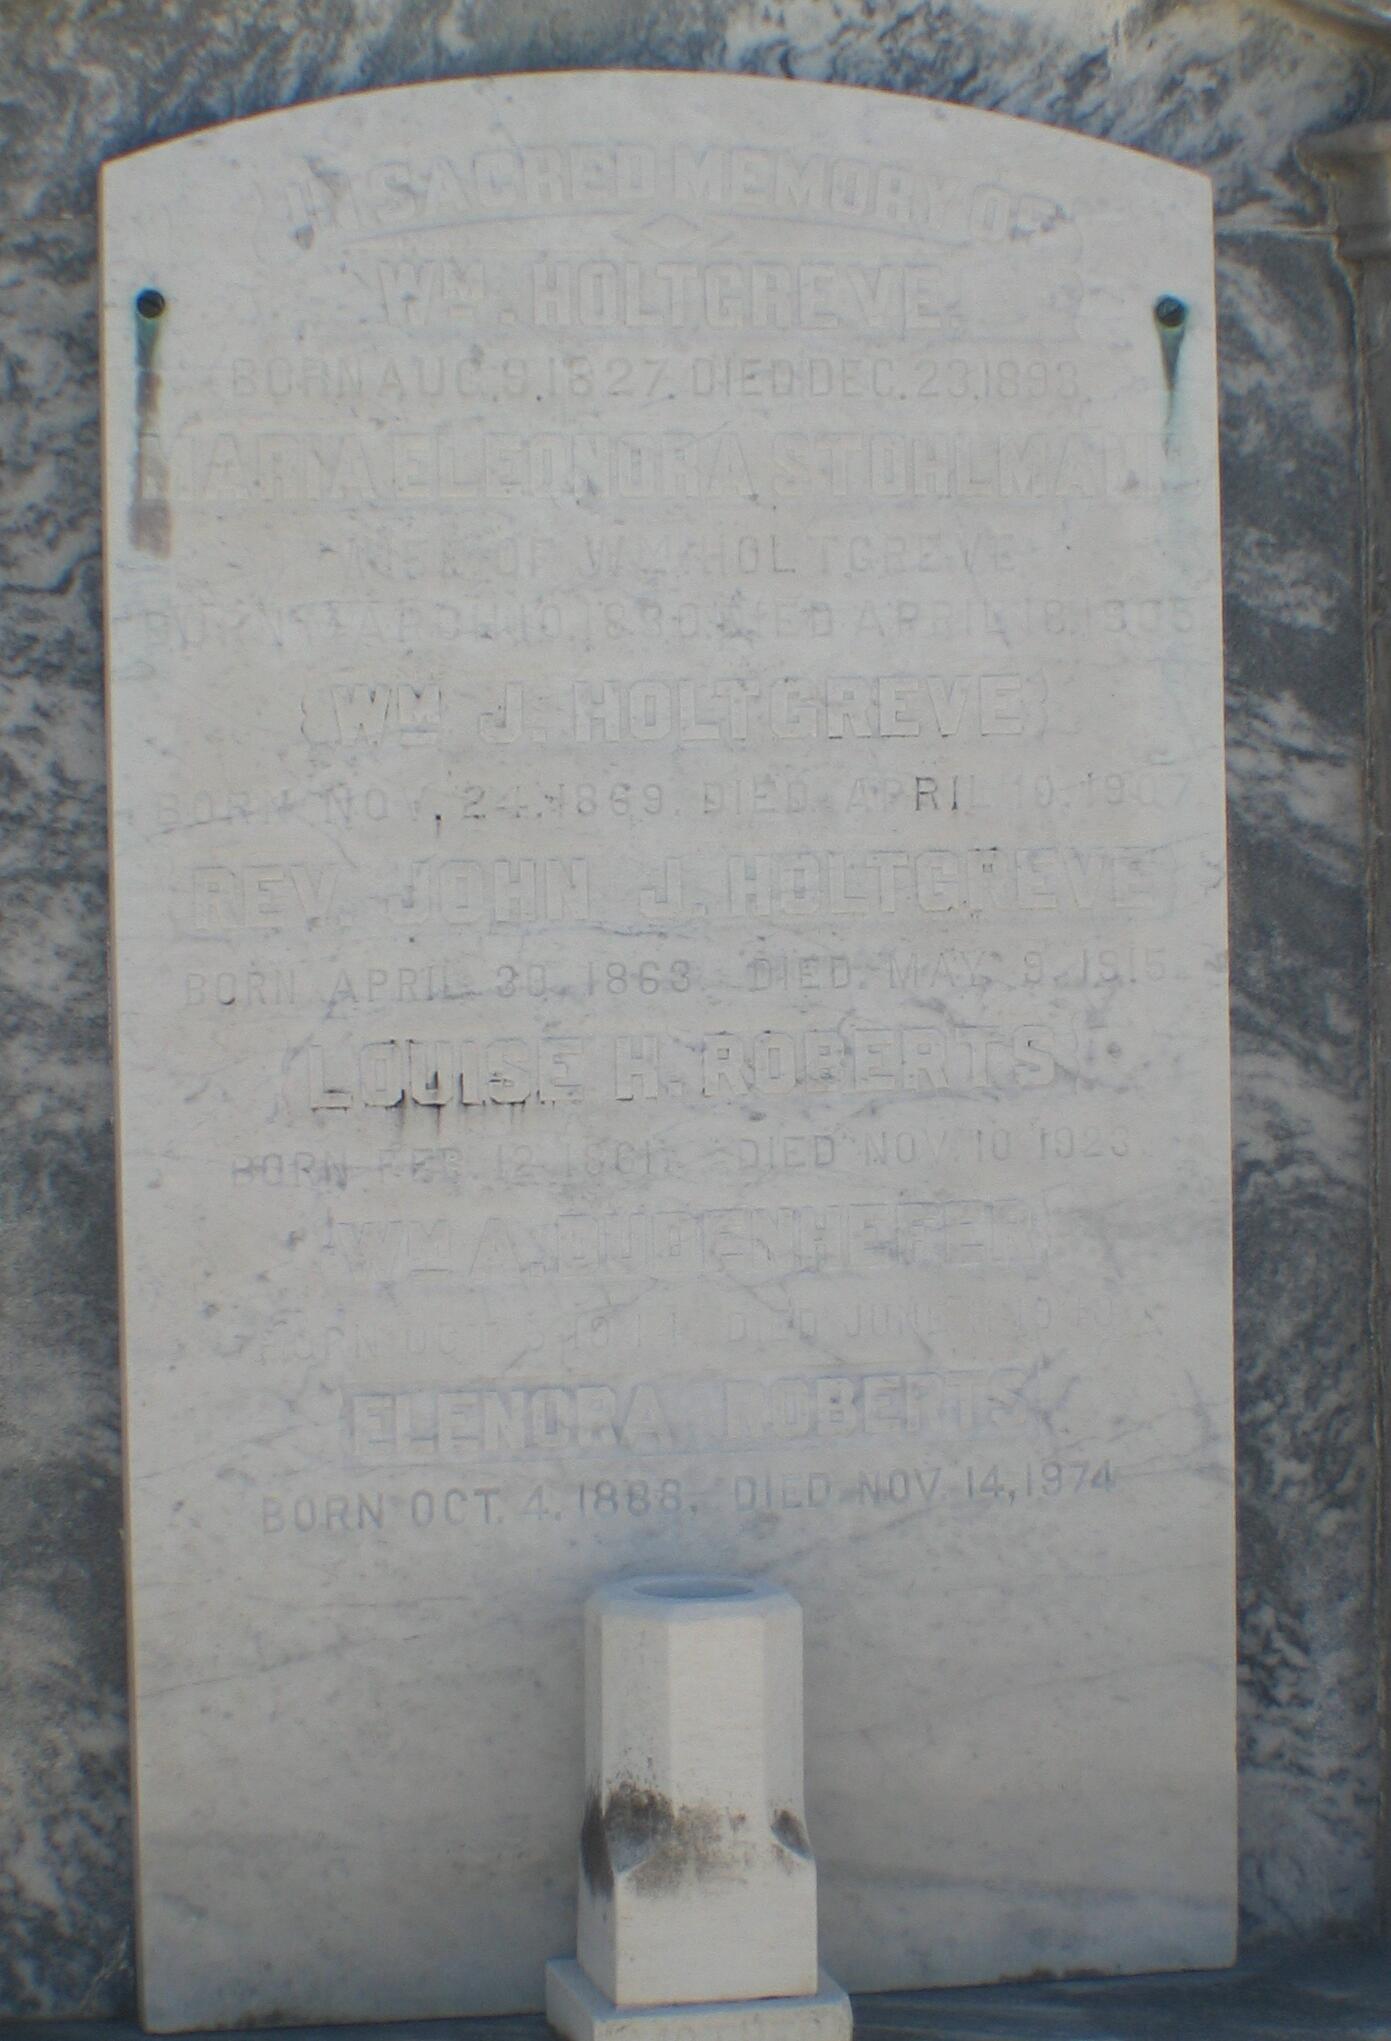 IN SACRED MEMORY OF
WM. HOLTGREVE.
BORN AUG. 9. 1827. DIED DEC. 23, 1893.
MARYA ELEONORA STOHLMANN
WIFE OF WM. HOLTGREVE
BORN MARCH 10, 1830. DIED APRIL 18, 1905
WM J. HOLTGREVE
BORN NOV. 24, 1869. DIED APRIL 10, 1907
REV. JOHN J. HOLTGREVE
BORN APRIL 30, 1863. DIED. MAY 9, 1915
LOUISE H. ROBERTS
BORN FEB. 12 1861. DIED NOV. 10 1923.
WM A. DUDENHEFER
BORN OCT. DIED JUNE
ELENORA ROBERTS
BORN OCT. 4, 1888. DIED NOV. 14, 1974